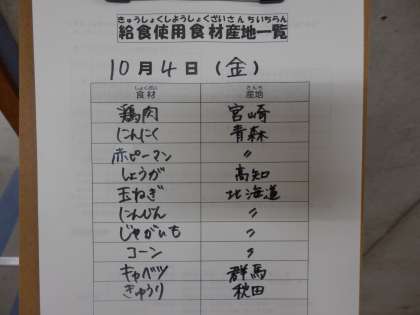 きゅうしょくしようしょくざいさんちいちらん
給食使用食材産地一覧
10月4日（金）
しょくざい さんち
食材 産地
鶏肉 宮崎
にんにく 青森
赤ピーマン 〃
しょうが 高知
玉ねぎ 北海道
にんじん 〃
じゃがいも 〃
コーン 〃
キャベツ 群馬
きゅうり 秋田